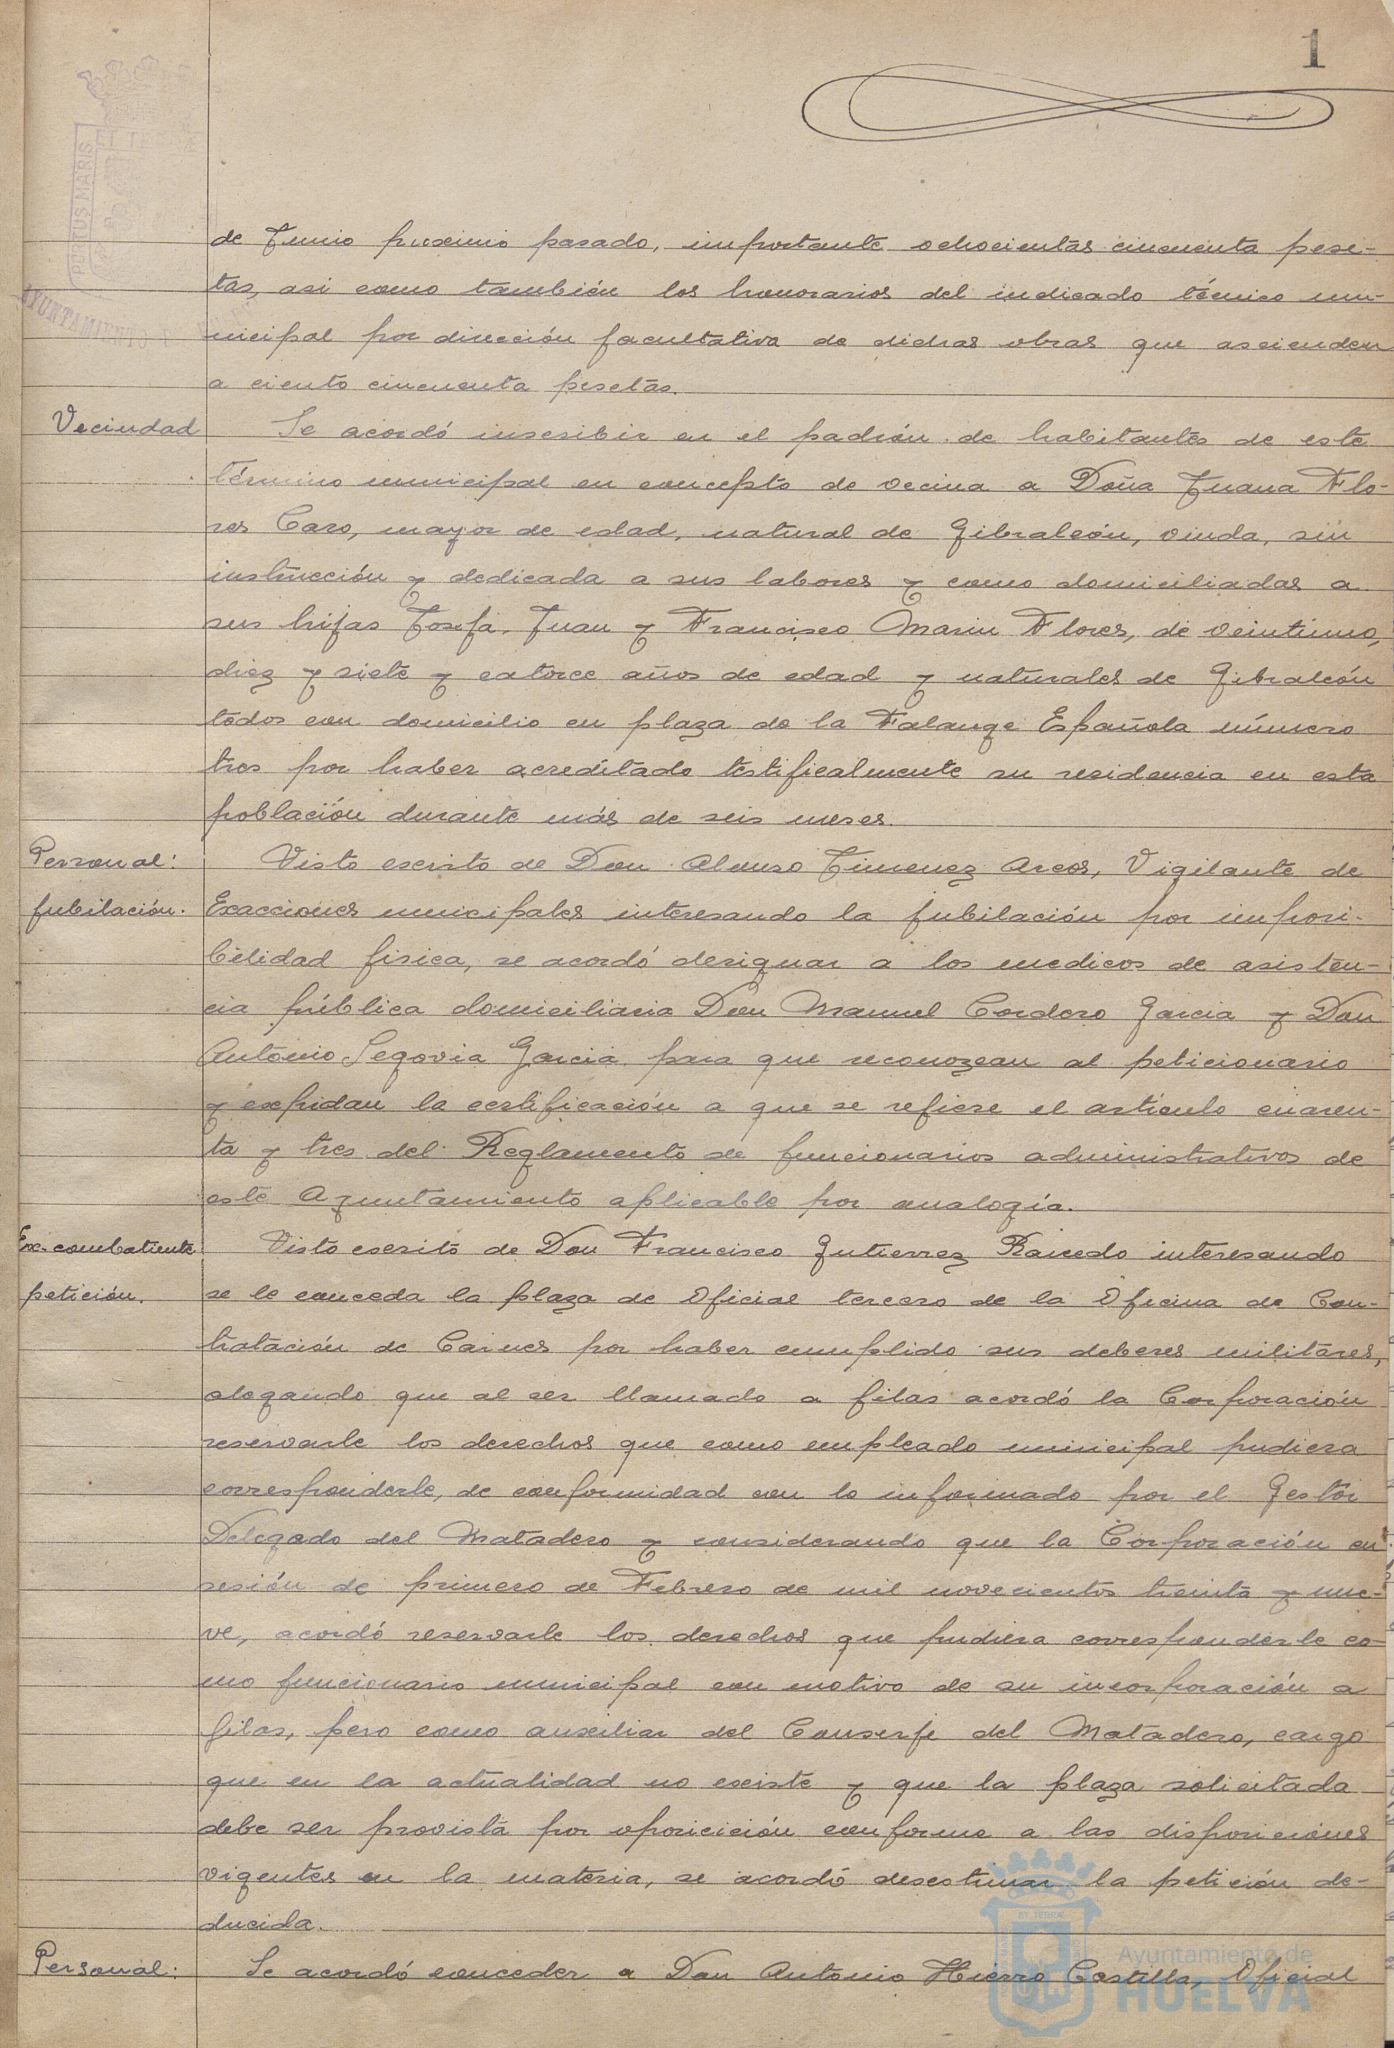 1
PORTUS MARIS
AYUNTAMIENTO
de Junio proximo pasado, importante ochocientas cincuenta pese-
tas, asi como también los honorarios del indicado técnico mu-
nicipal por dirección facultativa de dichas obras que ascienden
a ciento cincuenta pesetas.
Vecindad
Se acordó inscribir en el padrón de habitantes de este
término municipal en concepto de vecina a Doña Juana Flo-
res Caro, mayor de edad, natural de Gibraleón, viuda, sin
instrucción y dedicada a sus labores y como domiciliadas a
sus hijas Josefa, Juan y Francisco Marin Flores, de veintiuno,
diez y siete y catorce años de edad y naturales de Gibraleón
todos con domicilio en plaza de la Falange Española número
tres por haber acreditado testificalmente su residencia en esta
población durante más de seis meses.
Personal:
jubilación.
Visto escrito de Don Alonso Jimenez Arcos, Vigilante de
Exacciones municipales interesando la jubilación por imposi-
bilidad fisica, se acordó designar a los medicos de asisten-
cia pública domiciliaria Don Manuel Cordero Garcia y Don
Antonio Segovia Garcia para que reconozcan al peticionario
y expidan la certificación a que se refiere el articulo cuaren-
ta y tres del Reglamento de funcionarios administrativos de
este Ayuntamiento aplicable por analogía.
Ex-combatiente
petición.
Visto escrito de Don Francisco Gutierrez Raicedo interesando
se le conceda la plaza de Oficial tercero de la Oficina de Con-
tratación de Carnes por haber cumplido sus deberes militares,
alegando que al ser llamado a filas acordó la Corporación
reservarle los derechos que como empleado municipal pudiera
corresponderle, de conformidad con lo informado por el Gestor
Delegado del Matadero y considerando que la Corporación en
sesión de primero de Febrero de mil novecientos treinta y nue-
ve, acordó reservarle los derechos que pudiera corresponderle co-
mo funcionario municipal con motivo de su incorporación a
filas, pero como auxiliar del Conserje del Matadero, cargo
que en la actualidad no existe y que la plaza solicitada
debe ser provista por oposicición conforme a las disposiciones
vigentes en la materia, se acordó desestimar la petición de-
ducida.
Personal:
Se acordó conceder a Don Antonio Hierro Castilla, Oficial
Ayuntamiento de
HUELVA